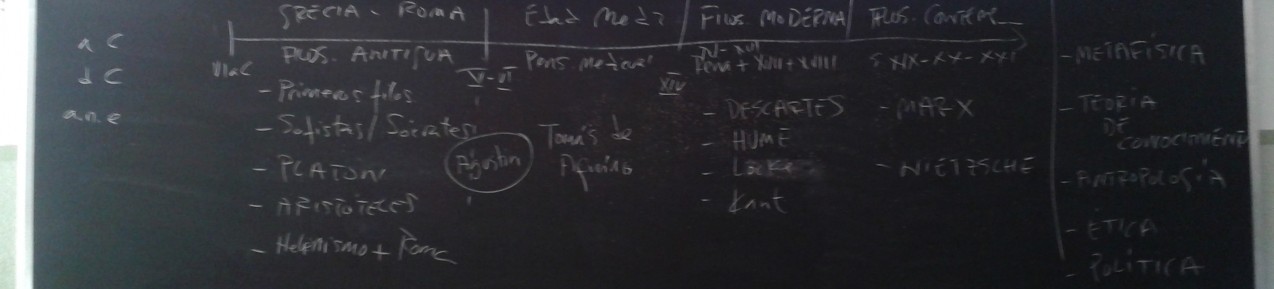 a C
d C
a.n.e
GRECIA - ROMA
Edad Med
FILOS. MODERNA
FILOS. CONTEM
FILOS. ANTIGUA
VI aC
V-VI
Pens. medieval
XIV
XV-XVI
+ XVII + XVIII
S XIX-XX-XXI
- Primeros filos
- Sofistas/Sócrates
- PLATÓN
- ARISTÓTELES
- Helenismo + Roma
Agustín
Tomás de
Aquino
- DESCARTES
- HUME
- Locke
- Kant
- MARX
- NIETZSCHE
- METAFÍSICA
- TEORÍA
DE
CONOCIMIENTO
- ANTROPOLOGÍA
- ÉTICA
- POLÍTICA